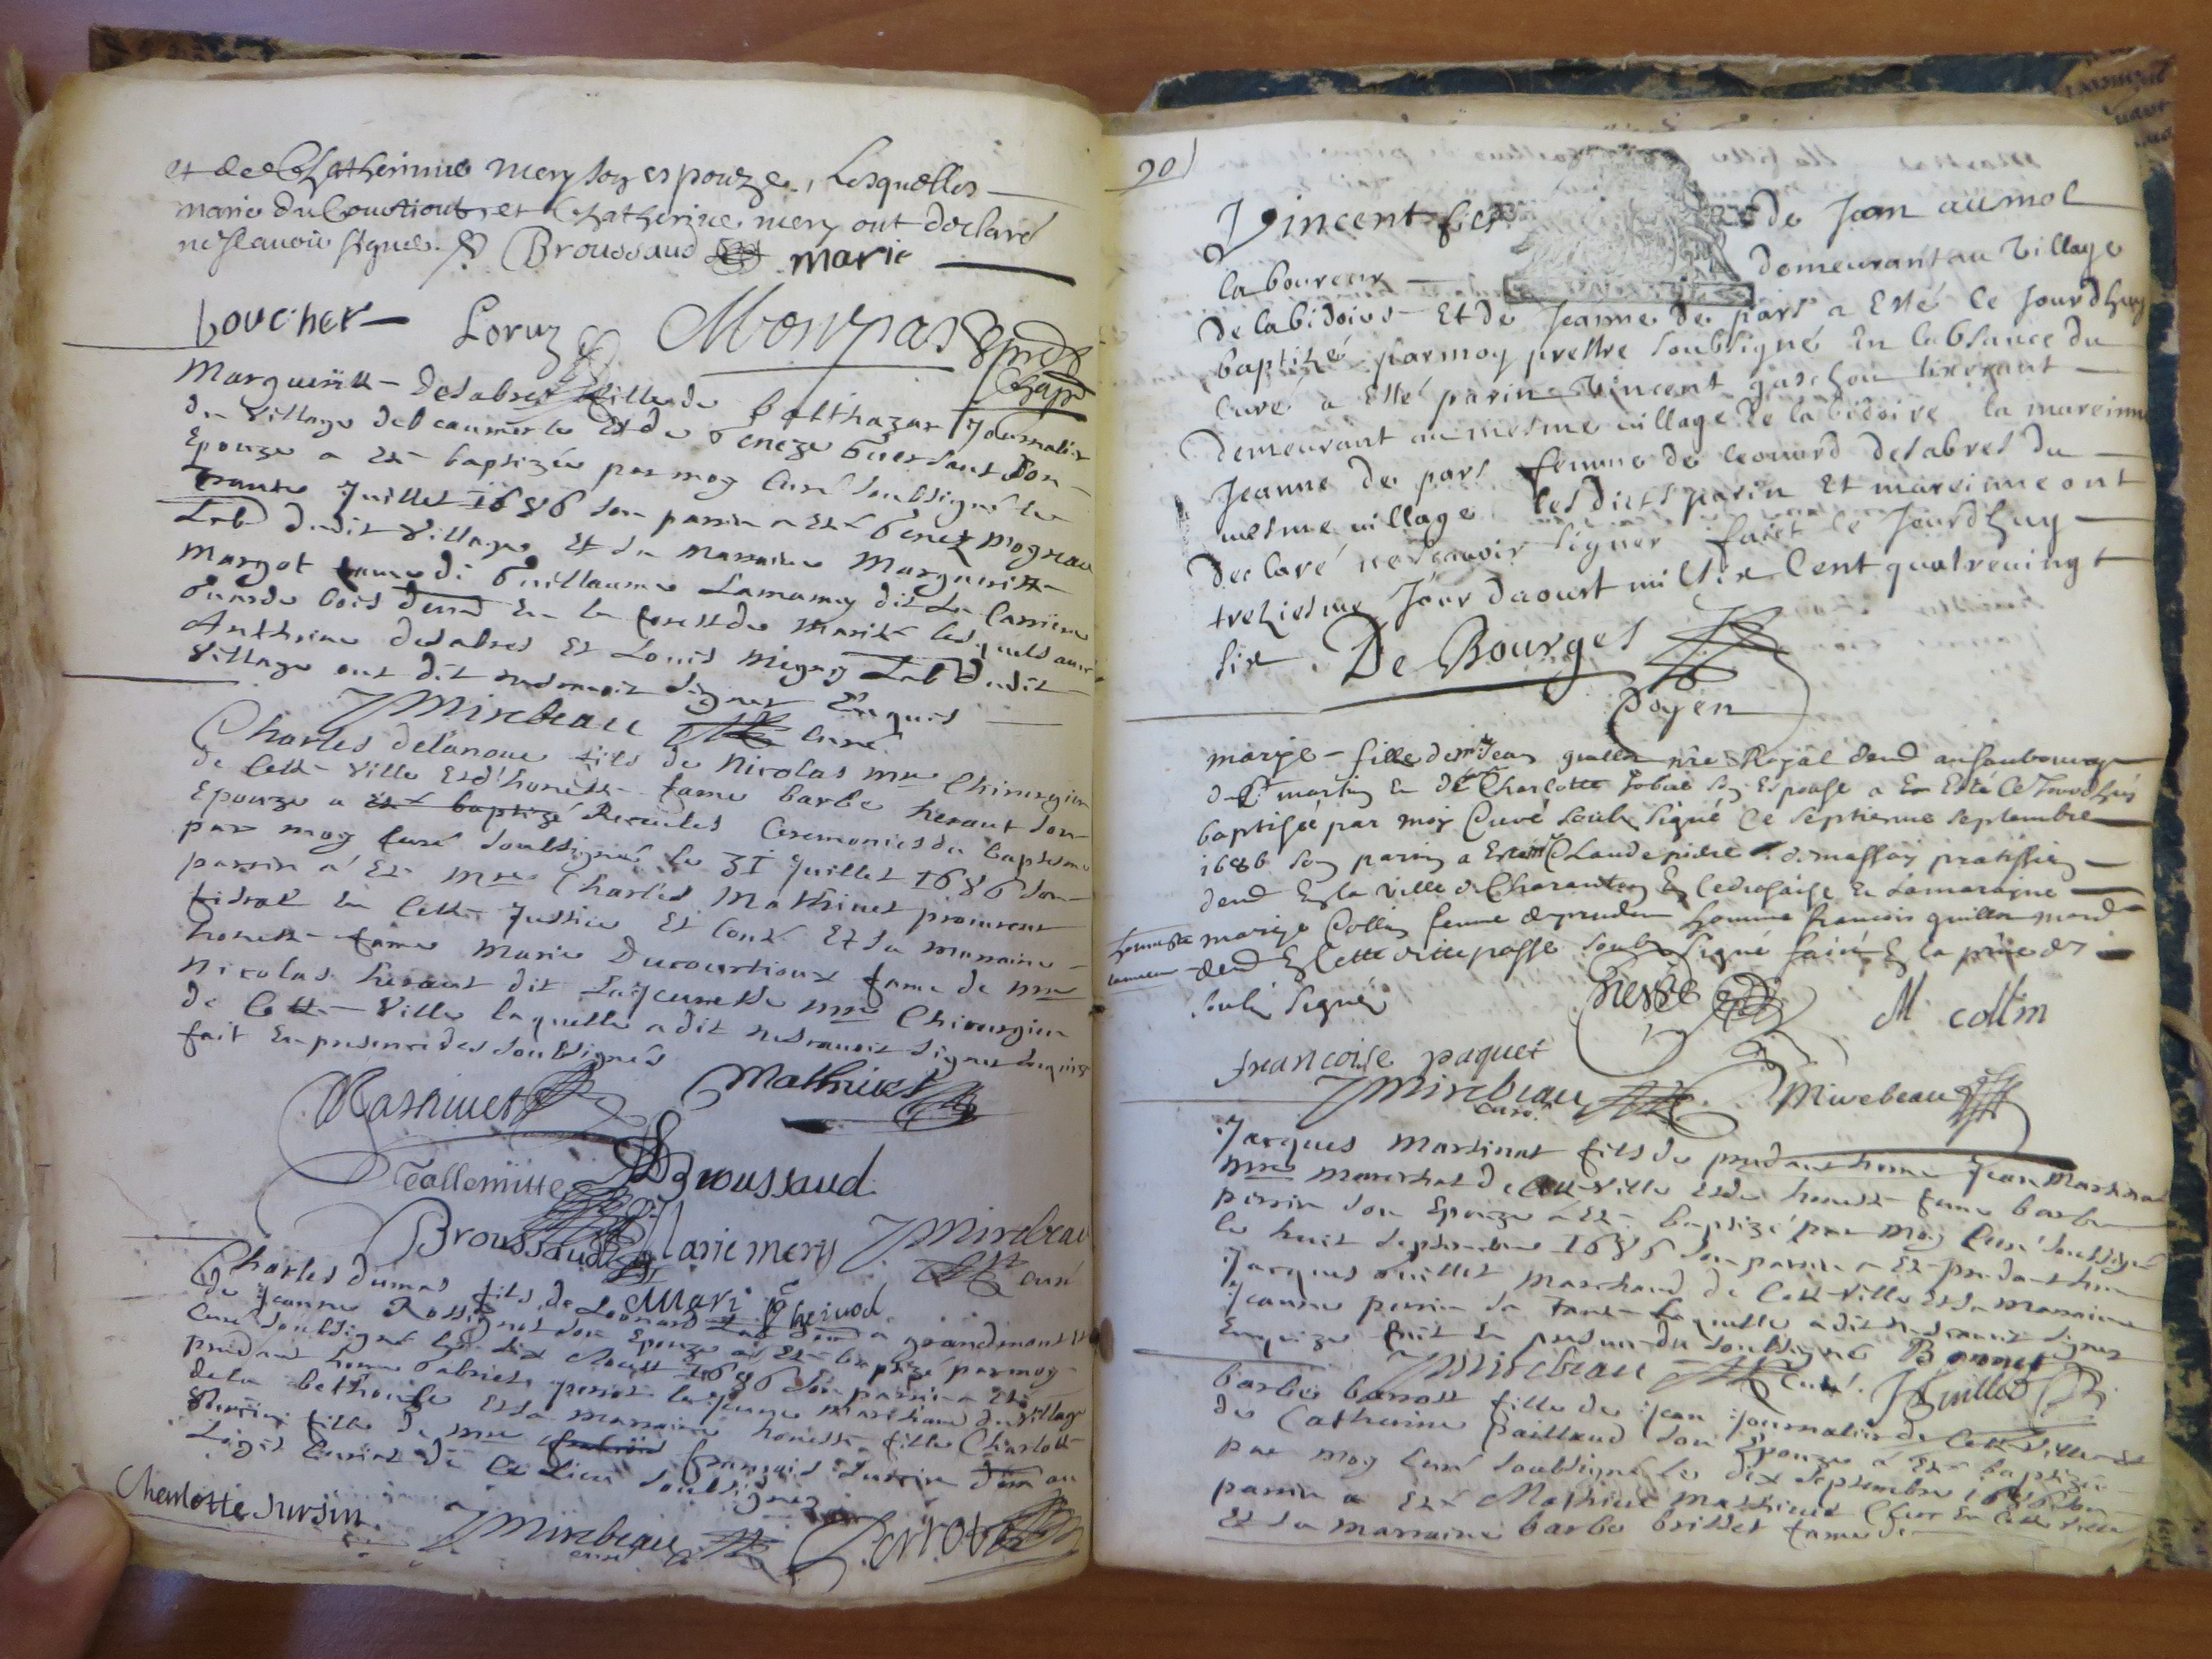 et de Chatherinne mery son espouze, Lesquelles
marie du Courtioux et Chatherine mery ont declaré
ne scavoir signer. Broussaud marie
boucher Loruz Monpas
Margueritte desabres fille de balthazar Journalier
du village de beaumerle Et de Geneze Guersaut son
Epouze a Esté baptizée par moy Curé soubsigné le
trante Juillet 1686 son parrin a Esté Genez Mogneau
Lab dudit village et sa marraine Margueritte
Margot fame de Guillaume Lamamy dit La Carriere
Guarde bois demt En la forest de lesquels avec
Anthoine desabres Et Louis Migny Lab dudit
village ont dit ne scavoir signer Enquis
JMirebeau Curé
Charles delanoue fils de Nicolas mre Chirurgien
de Cette ville Et d'honeste fame barbe heraut son
Epouze a esté baptizé Receu les Ceremonies du baptesme
par moy Curé soubsigné le 31 Juillet 1686 son
parrin a Esté Mre Charles Mathivet procureur
fiscal En Cette Justice Et Conté Et sa marraine
honeste fame Marie Ducourtioux fame de mre
Nicolas heraut dit mre Chirurgien
de Cette ville laquelle a dit ne scavoir signer Enquise
fait En presence des soubsignés
Mathivet Mathivet
Tallemitte Broussaud
Broussaud Marie mery JMirebeau
curé
Mari
Charles dumas fils de Leonard Lab demt a grandmont Et
de Jeanne Rossignol son Epouze a Esté baptizé par moy
Curé soubsigné le dix Aoust 1686 son parrin a Esté
prudant home Gabriel perrot le Jeune Marchant du village
de la bethoulle Et sa marraine honeste fille Charlotte
Sursin fille de mre francois Sursin demt au
Logis de Ce Lieu soubsignez
Charlotte Sursin JMirebeau curé Perrot
90
Vincent fils de Jean aumol
laboureur demeurant au village
de la bidoire Et de Jeanne de pars a Esté ce Jourdhuy
baptizé par moy prestre soubsigné En labsance du
Curé a Esté parin Vincent gaschou tixerant
demeurant au mesme village de la bidoire la mareinne
Jeanne de pars femme de leonard desabres du
mesme village lesdicts parin Et mareinne ont
declaré ne scavoir signer faict le Jourdhuy
treziesme Jour daoust mil six Cent quatrevingt
six De Bourges
Doyen
marye fille de mr Jean guillon nre Royal demt au faubourg
de St martin Et de Charlotte Jobut son Espouse a Esté Ce Jourdhuy
baptisée par moy Curé soubs signé Le septiesme septembre
1686 son parin a Esté Claude pierre de massay pratissien
demt En la ville de Charantou Et sa maraine
honneste marye Collin femme de prudan homme francois guillon mard
demt En Cette ville soubs signé faict En la pnce des
soubs signés Piesse M collin
francoise paquet
JMirebeau Curé Mirebeau
Jacques Martinat fils de prudant home Jean Martinat
mre mareschal de Cette ville Et de honeste fame barbe
perrin son Epouze a Esté baptizé par moy Curé soubsigné
le huit septembre 1686 son parrin a Esté prudant home
Jacques Guillet Marchand de Cette ville Et sa marraine
Jeanne perrin sa Tante Laquelle a dit ne scavoir signer
Enquize fait En presence du soubsigné Bonnet
JMirebeau Curé. JGuillet
barbe barrost fille de Jean Journalier de Cette ville Et
de Catherine paillaud son Epouze a Esté baptizée
par moy Curé soubsigné le dix septembre 1686 son
parrin a Esté Mathieu Mathivet Clerc En Cette ville
Et sa marraine barbe brisset fame de